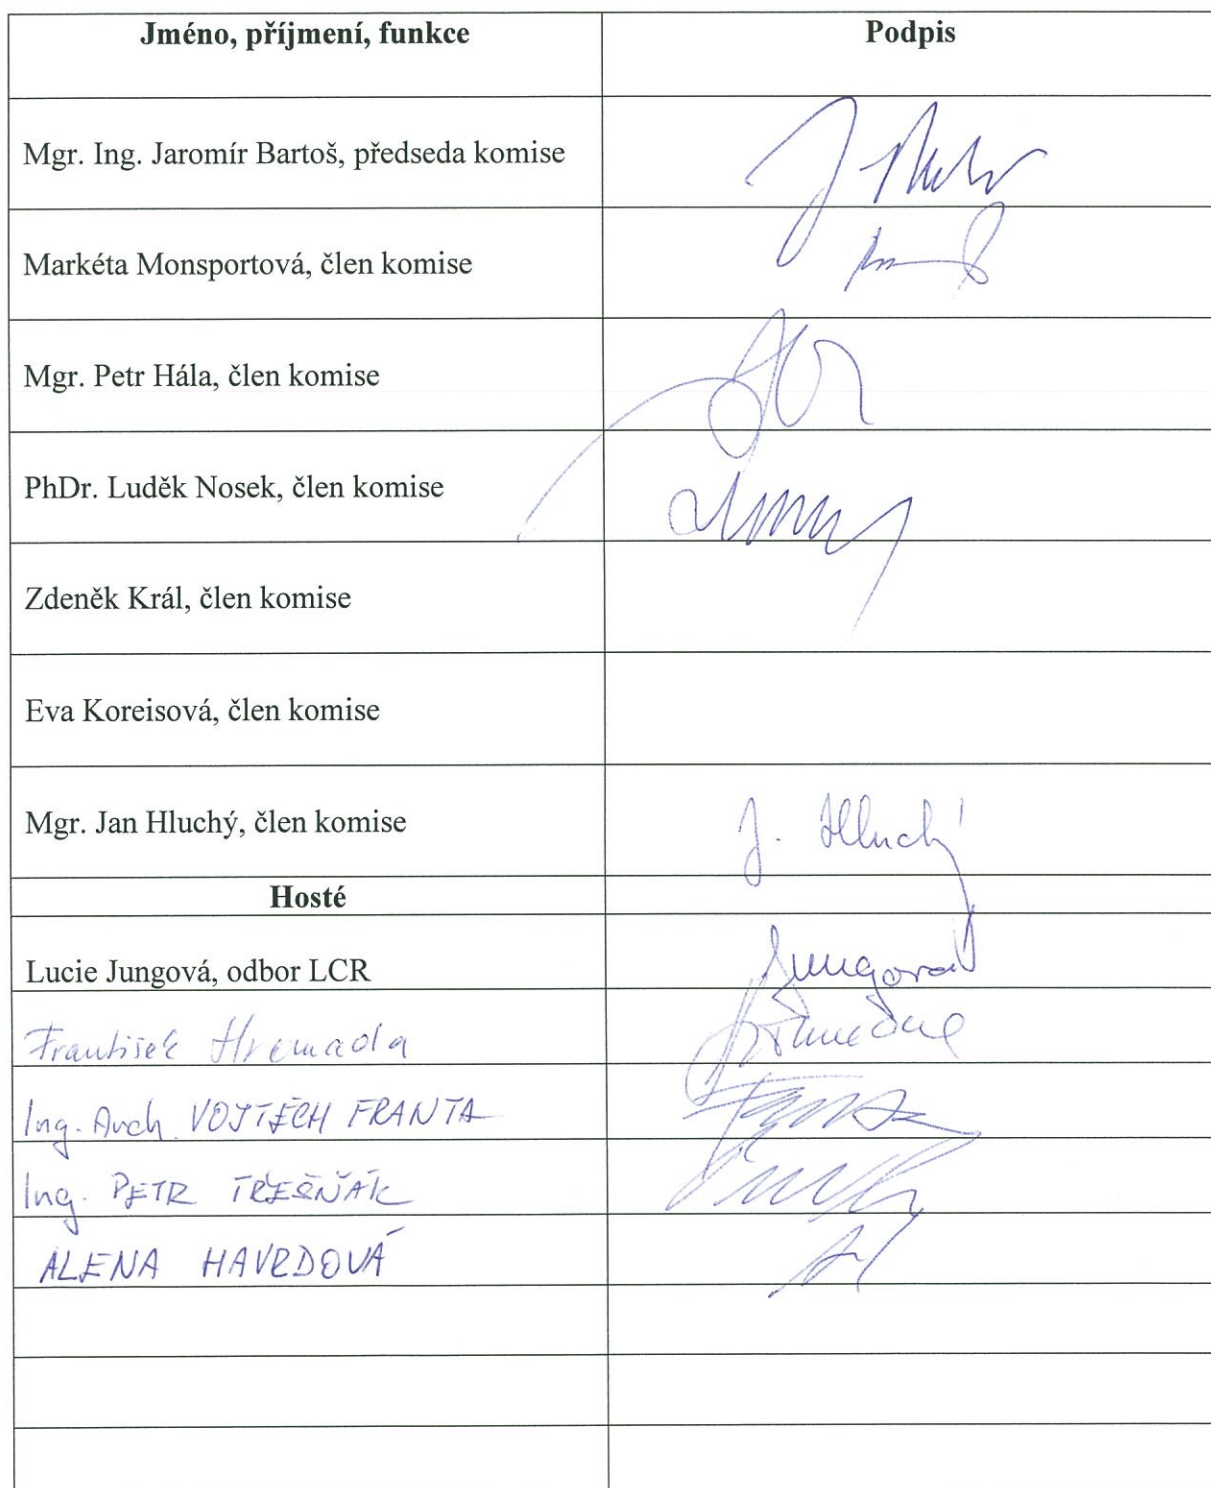 Jméno, příjmení, funkce Podpis
Mgr. Ing. Jaromír Bartoš, předseda komise
Markéta Monsportová, člen komise
Mgr. Petr Hála, člen komise
PhDr. Luděk Nosek, člen komise
Zdeněk Král, člen komise
Eva Koreisová, člen komise
Mgr. Jan Hluchý, člen komise J. Hluchý
Hosté
Lucie Jungová, odbor LCR Jungová
František Hremada
Ing. Arch. VOJTĚCH FRANTA
Ing. PETR TŘEŠŇÁK
ALENA HAVRDOVÁ